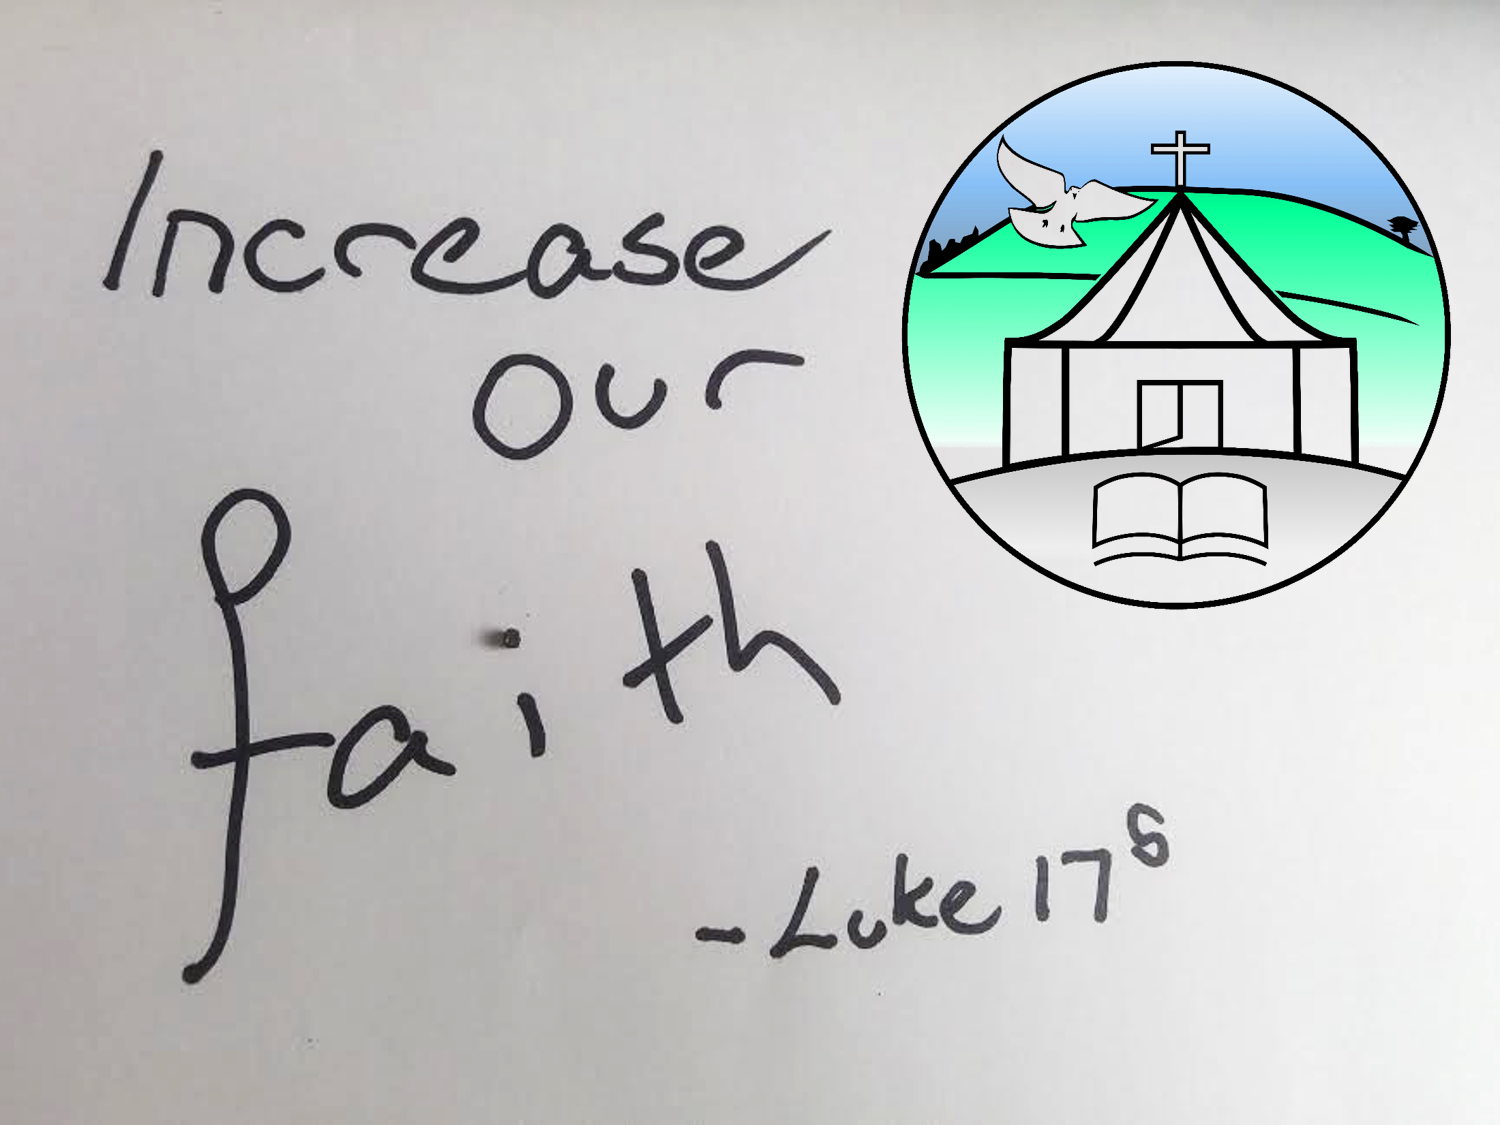 Increase
our
faith
- Luke 17⁵